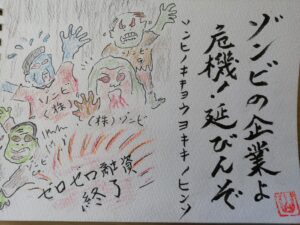 ゾンビの企業よ
危機!延びんぞ
ソンヒノキキョウヨキキノヒンソ
ゾンビ
(株)
(株)ゾンビ
ゼロゼロ融資
終了